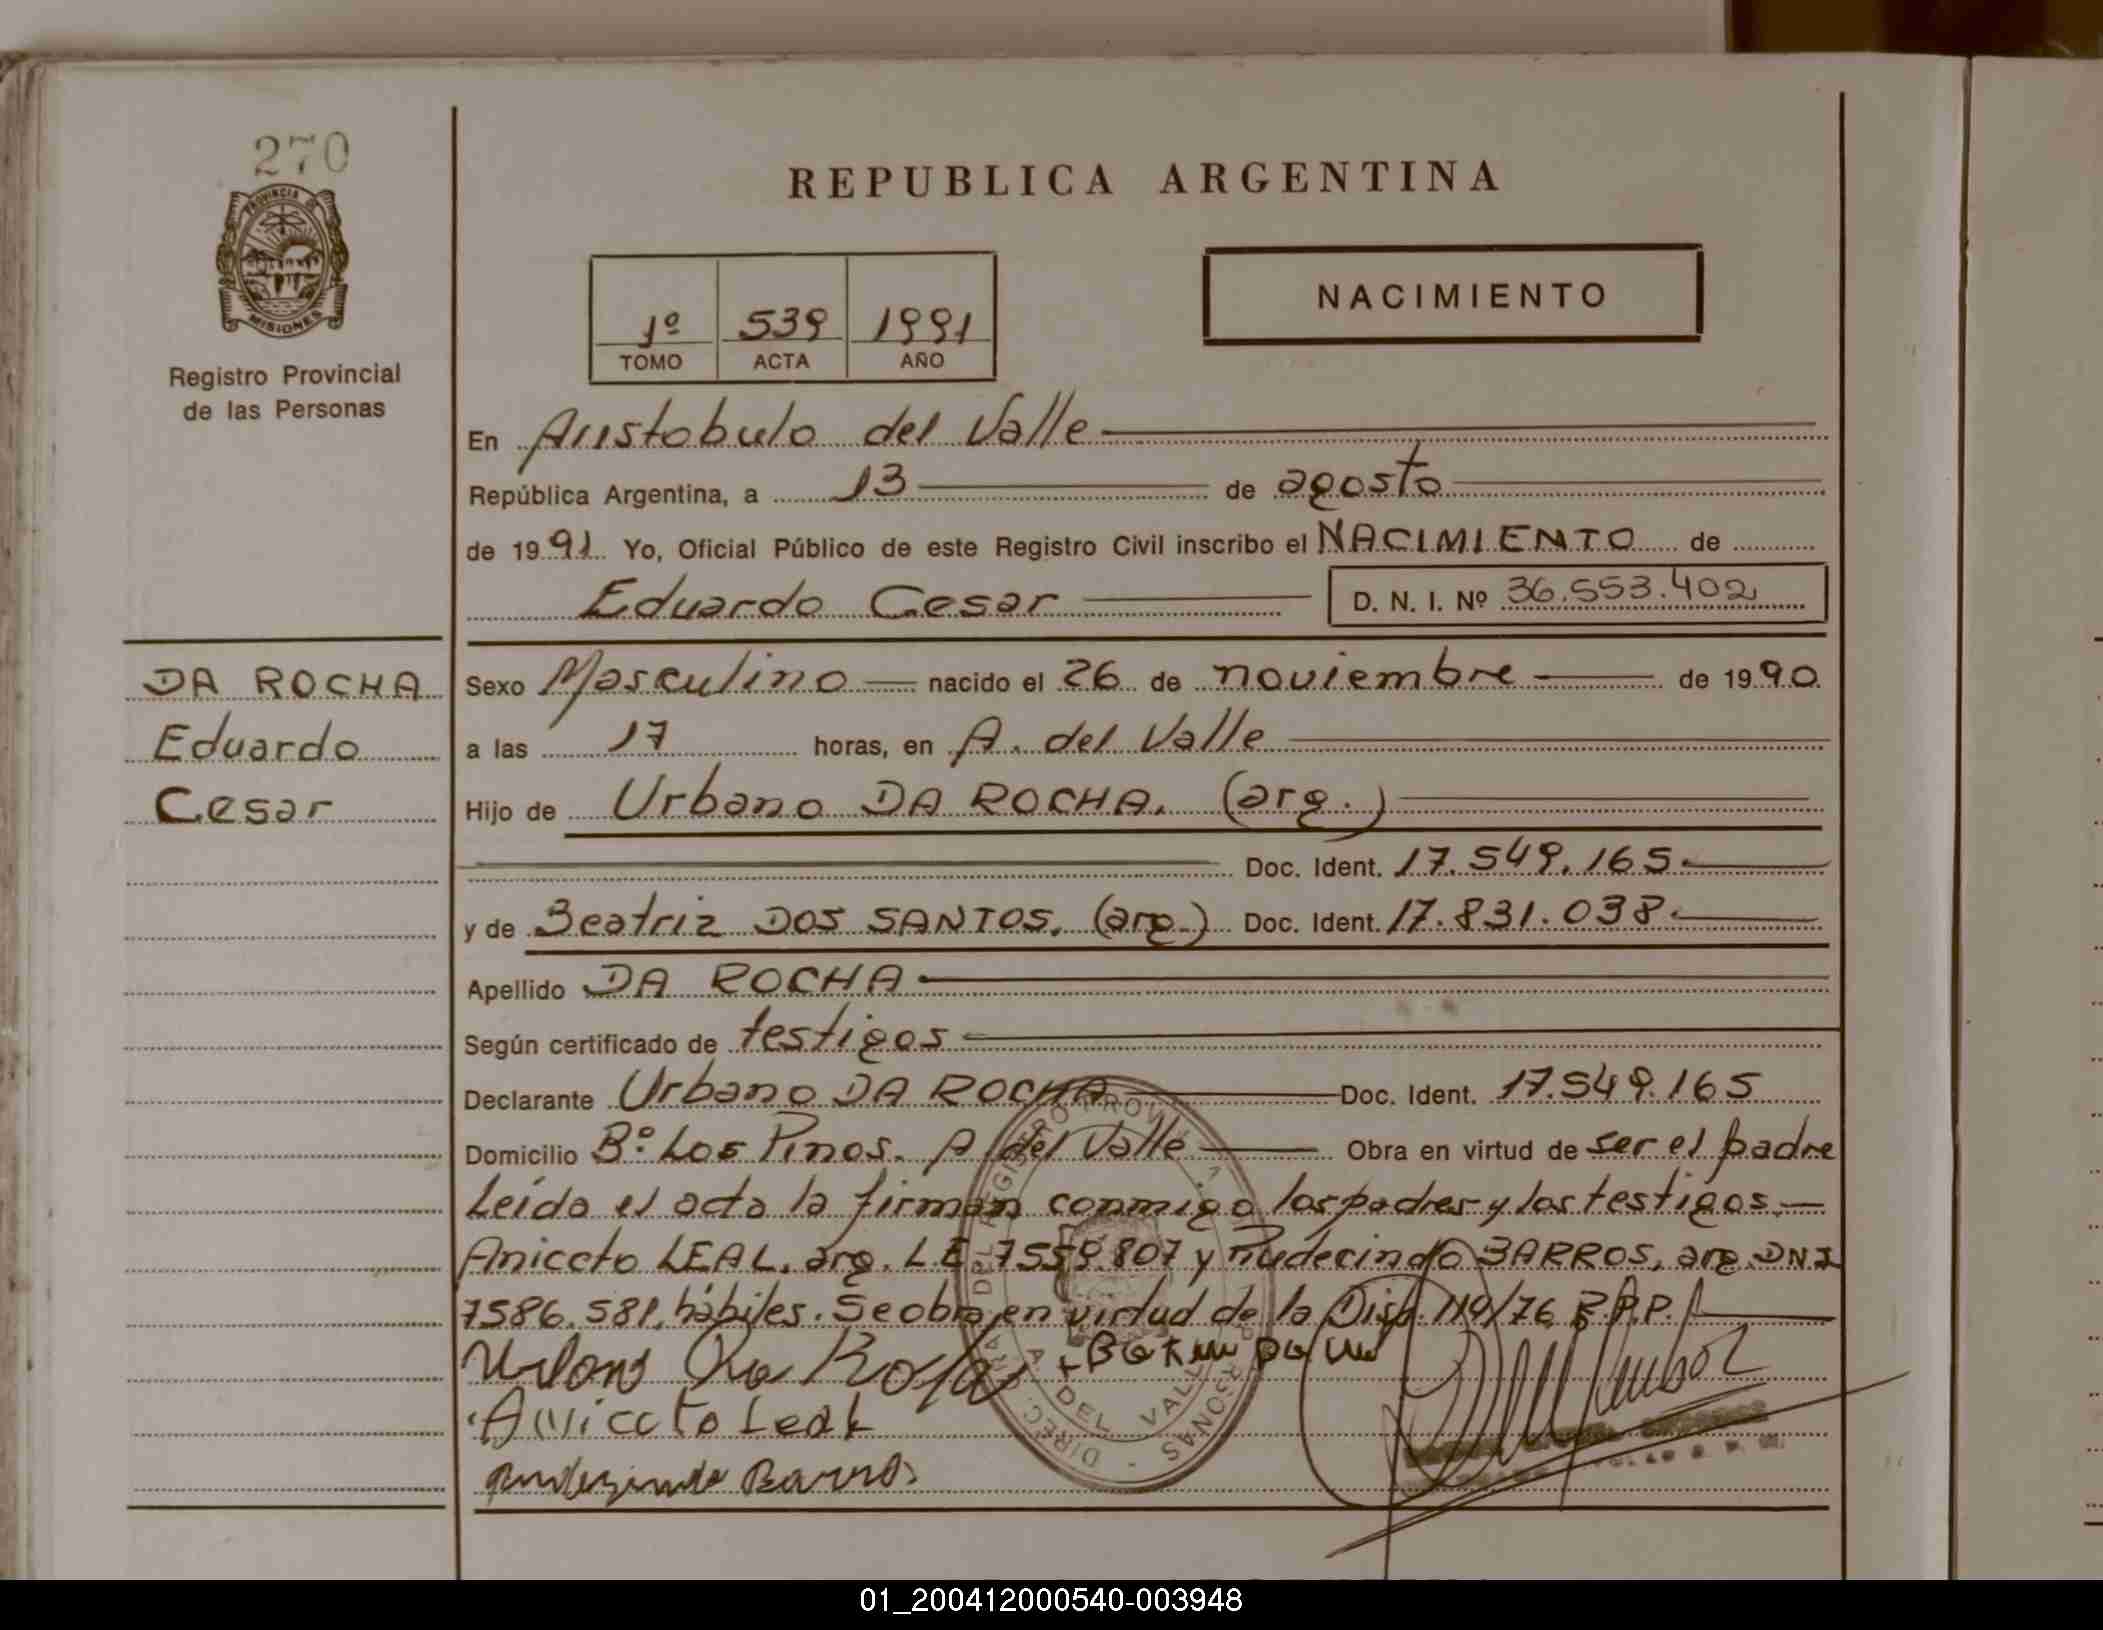 270
PROVINCIA DE
MISIONES
Registro Provincial
de las Personas
REPUBLICA ARGENTINA
1º 539 1991
TOMO ACTA AÑO
NACIMIENTO
En Aristobulo del Valle
República Argentina, a 13 de agosto
de 1991 Yo, Oficial Público de este Registro Civil inscribo el NACIMIENTO de
Eduardo Cesar D. N. I. Nº 36.553.402
DA ROCHA
Eduardo
Cesar
Sexo Masculino nacido el 26 de noviembre de 1990
a las 17 horas, en A. del Valle
Hijo de Urbano DA ROCHA. (arg.)
Doc. Ident. 17.549.165
y de Beatriz DOS SANTOS. (arg.) Doc. Ident. 17.831.038
Apellido DA ROCHA
Según certificado de testigos
Declarante Urbano DA ROCHA Doc. Ident. 17.549.165
Domicilio Bº Los Pinos. A del Valle Obra en virtud de ser el padre
Leída el acta la firman conmigo los padres y los testigos.
Aniceto LEAL. arg. L.E. 7559.807 y Rudecindo BARROS, arg. DNI
7586.581, hábiles. Se obra en virtud de la Disp. 119/76 R.P.P.
Aniccto Leal
Barros
DIREC. GRAL. DEL REGISTRO PROV. PERSONAS
A. DEL VALLE
01_200412000540-003948